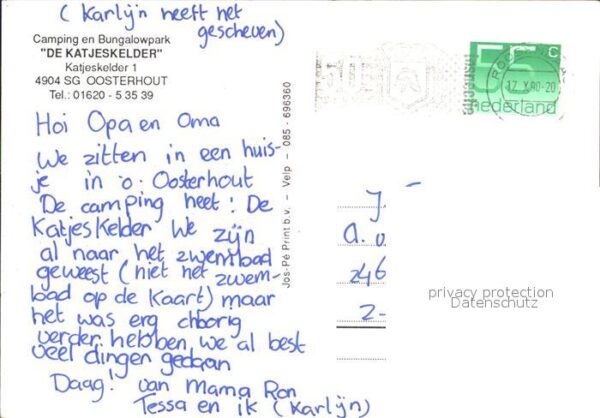 (Karlijn heeft het
gescheven)
Camping en Bungalowpark
"DE KATJESKELDER"
Katjeskelder 1
4904 SG OOSTERHOUT
Tel.: 01620 - 5 35 39
Hoi Opa en Oma
We zitten in een huis-
je in o. Oosterhout
De camping heet: De
Katjeskelder We zijn
al naar het zwembad
geweest (niet het zwem-
bad op de kaart) maar
het was erg
verder hebben we al best
veel dingen gedaan
Daag! van Mama Ron
Tessa en ik (Karlijn)
Jos-Pé Print b.v. - Velp - 085 - 696360
55 c
nederland
17.X.90-20
J -
a.v
246
2-
privacy protection
Datenschutz